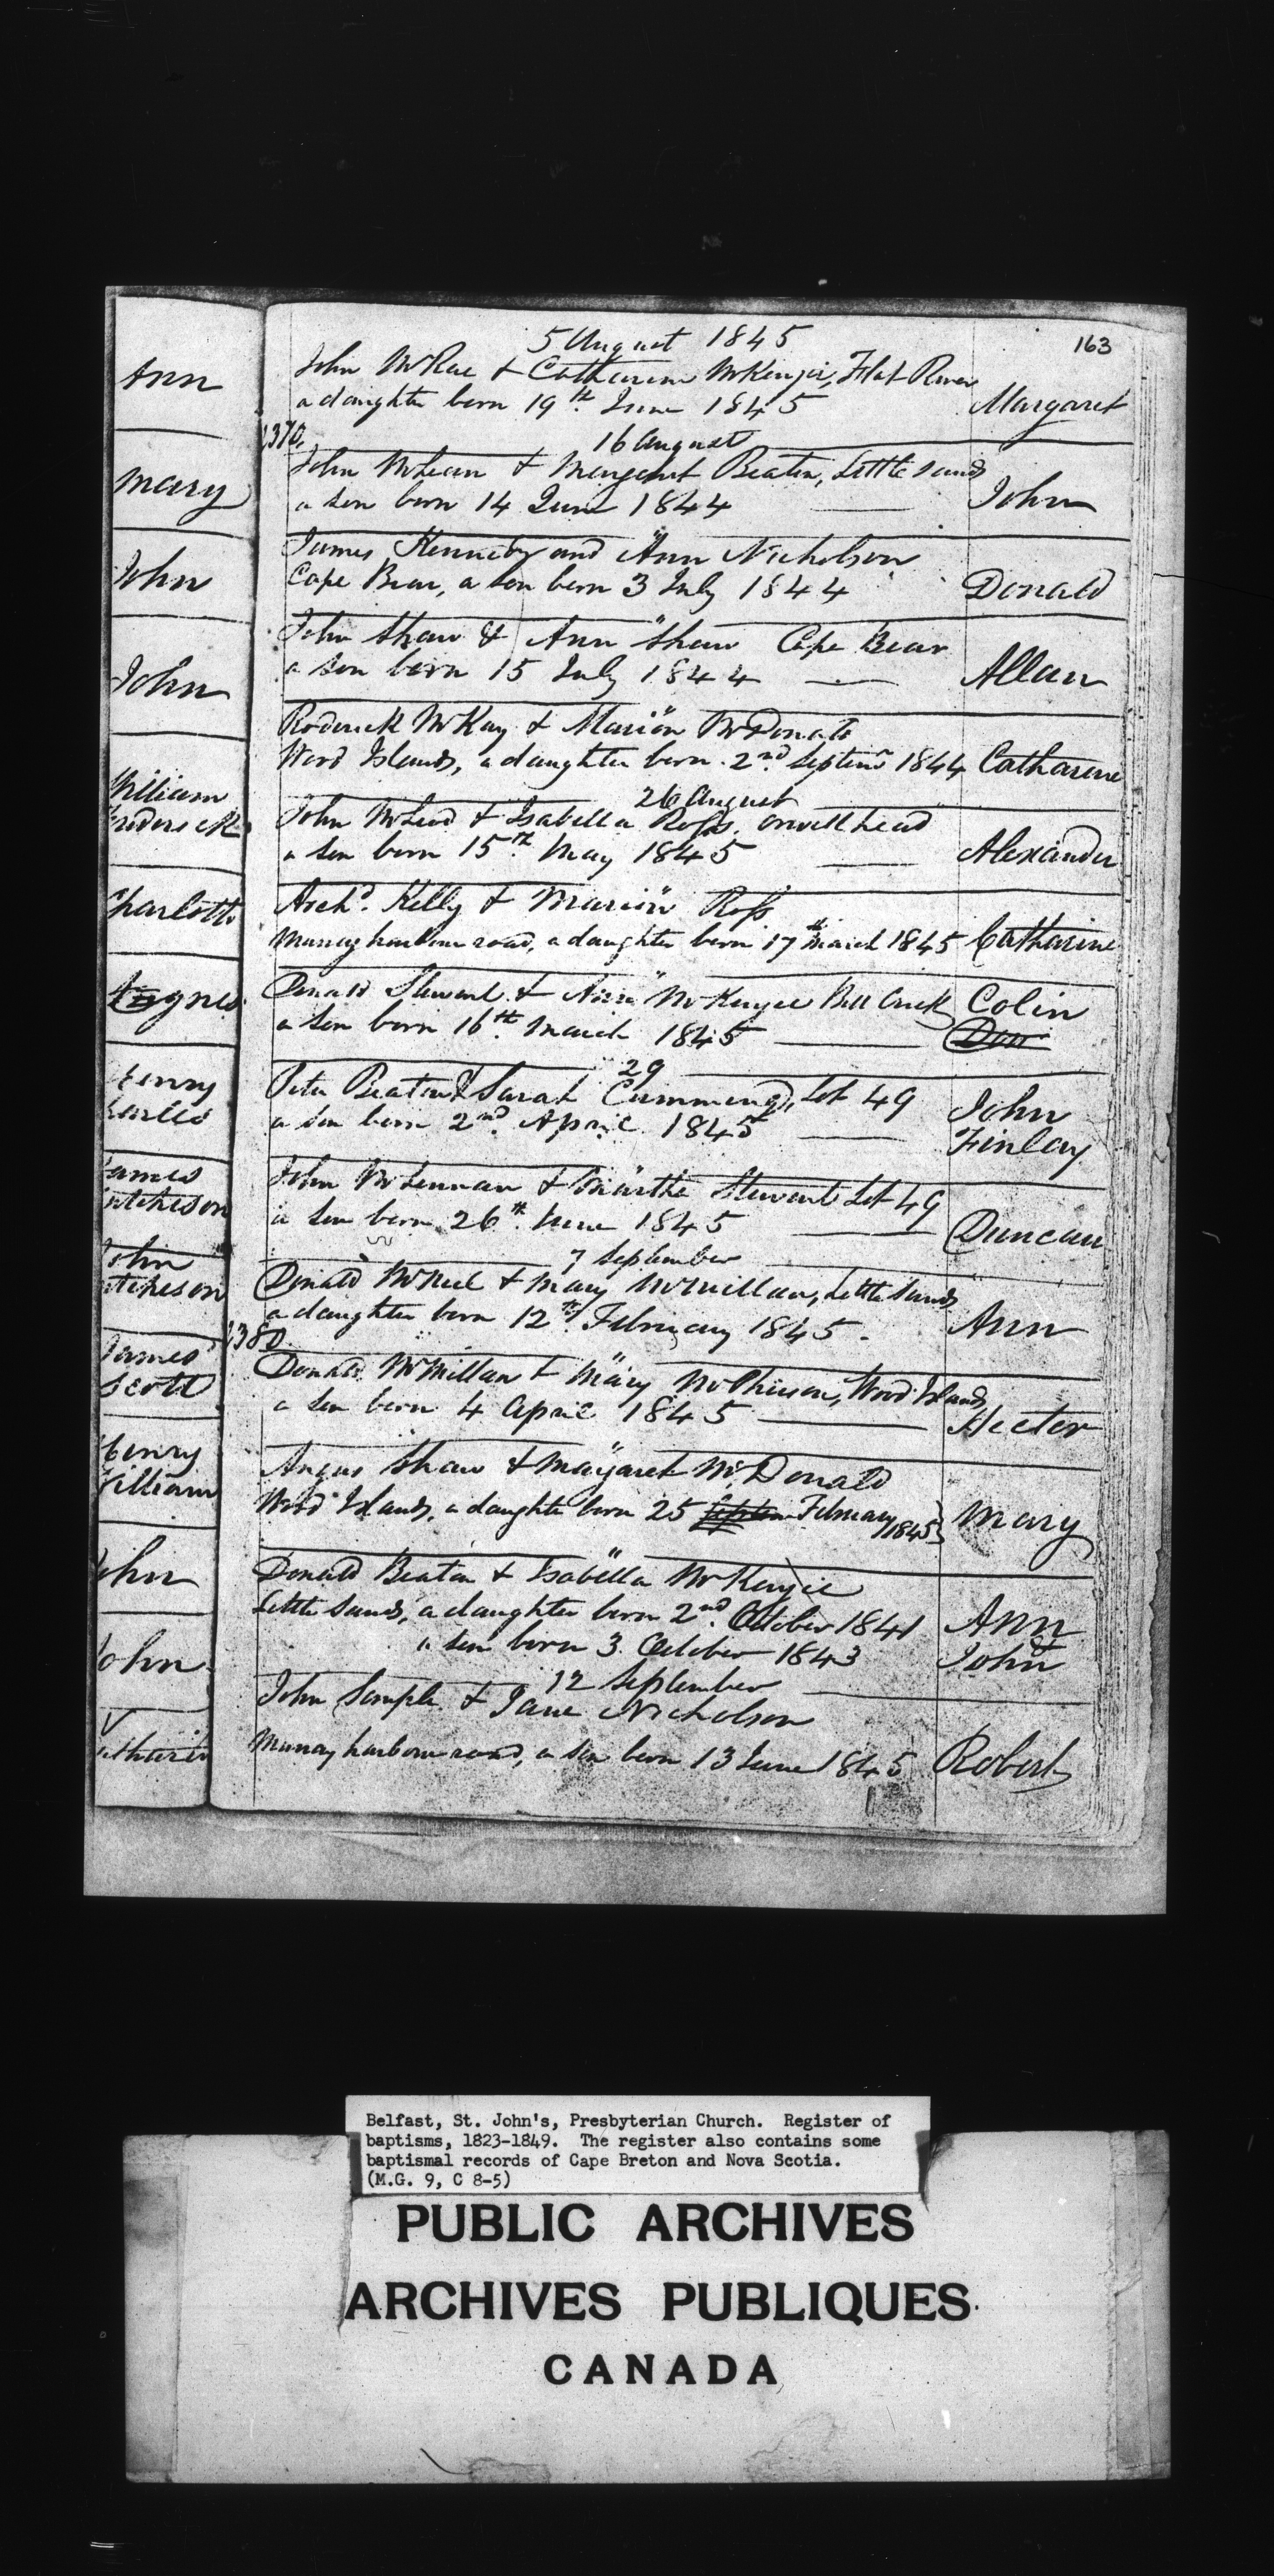 163
Ann
Mary
John
John
William
Frederick
Charlotte
Agnes
Henry
Charles
James
Hutcheson
John
Hutcheson
James
Scott
Henry
William
John
John
5 August 1845
John McRae & Catharine McKenzie, Flat River
a daughter born 19th. June 1845 Margaret
1370. 16 August
John McLean & Margaret Beaton, Little Sands
a son born 14 June 1844 John
James Kennedy and Ann Nicholson
Cape Bear, a son born 3 July 1844 Donald
John Shaw & Ann Shaw Cape Bear
a son born 15 July 1844 Allan
Roderick McKay & Marion McDonald
Wood Islands, a daughter born 2nd. Septemr 1844 Catharine
26 August
John McLeod & Isabella Ross. Orwell head
a son born 15th. May 1845 Alexander
Archd. Kelly & Marion Ross
Murray harbour road, a daughter born 17th March 1845 Catharine
Donald Stewart & Ann McKenzie Bell Creek Colin
a son born 16th. March 1845 Don
29
Peter Beaton & Sarah Cumming, Lot 49 John
a son born 2nd. April 1845 Finlay
John McLennan & Martha Stewart Lot 49
a son born 26th. June 1845 Duncan
7 September
Donald McNeil & Mary McMillan, Little Sands
a daughter born 12th. February 1845. Ann
1380
Donald McMillan & Mary McPherson, Wood Islands
a son born 4 April 1845 Hector
Angus Shaw & Margaret McDonald
Wood Islands, a daughter born 25 Septem February 1845 Mary
Donald Beaton & Isabella McKenzie
Little Sands, a daughter born 2nd. October 1841 Ann
&
a son born 3 October 1843 John
12 September
John Semple & Jane Nicholson
Murray harbour road, a son born 13 June 1845 Robert
Belfast, St. John's, Presbyterian Church. Register of
baptisms, 1823-1849. The register also contains some
baptismal records of Cape Breton and Nova Scotia.
(M.G. 9, C 8-5)
PUBLIC ARCHIVES
ARCHIVES PUBLIQUES
CANADA